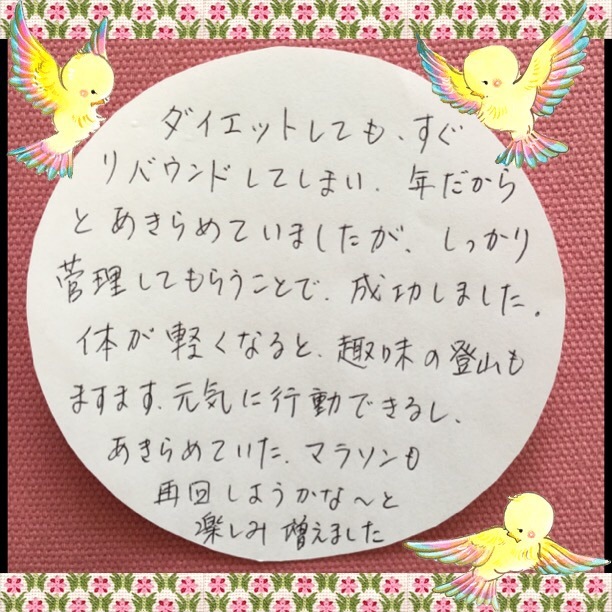 ダイエットしても、すぐ
リバウンドしてしまい、年だから
とあきらめていましたが、しっかり
管理してもらうことで、成功しました。
体が軽くなると、趣味の登山も
ますます、元気に行動できるし、
あきらめていた、マラソンも
再回しようかな〜と
楽しみ増えました